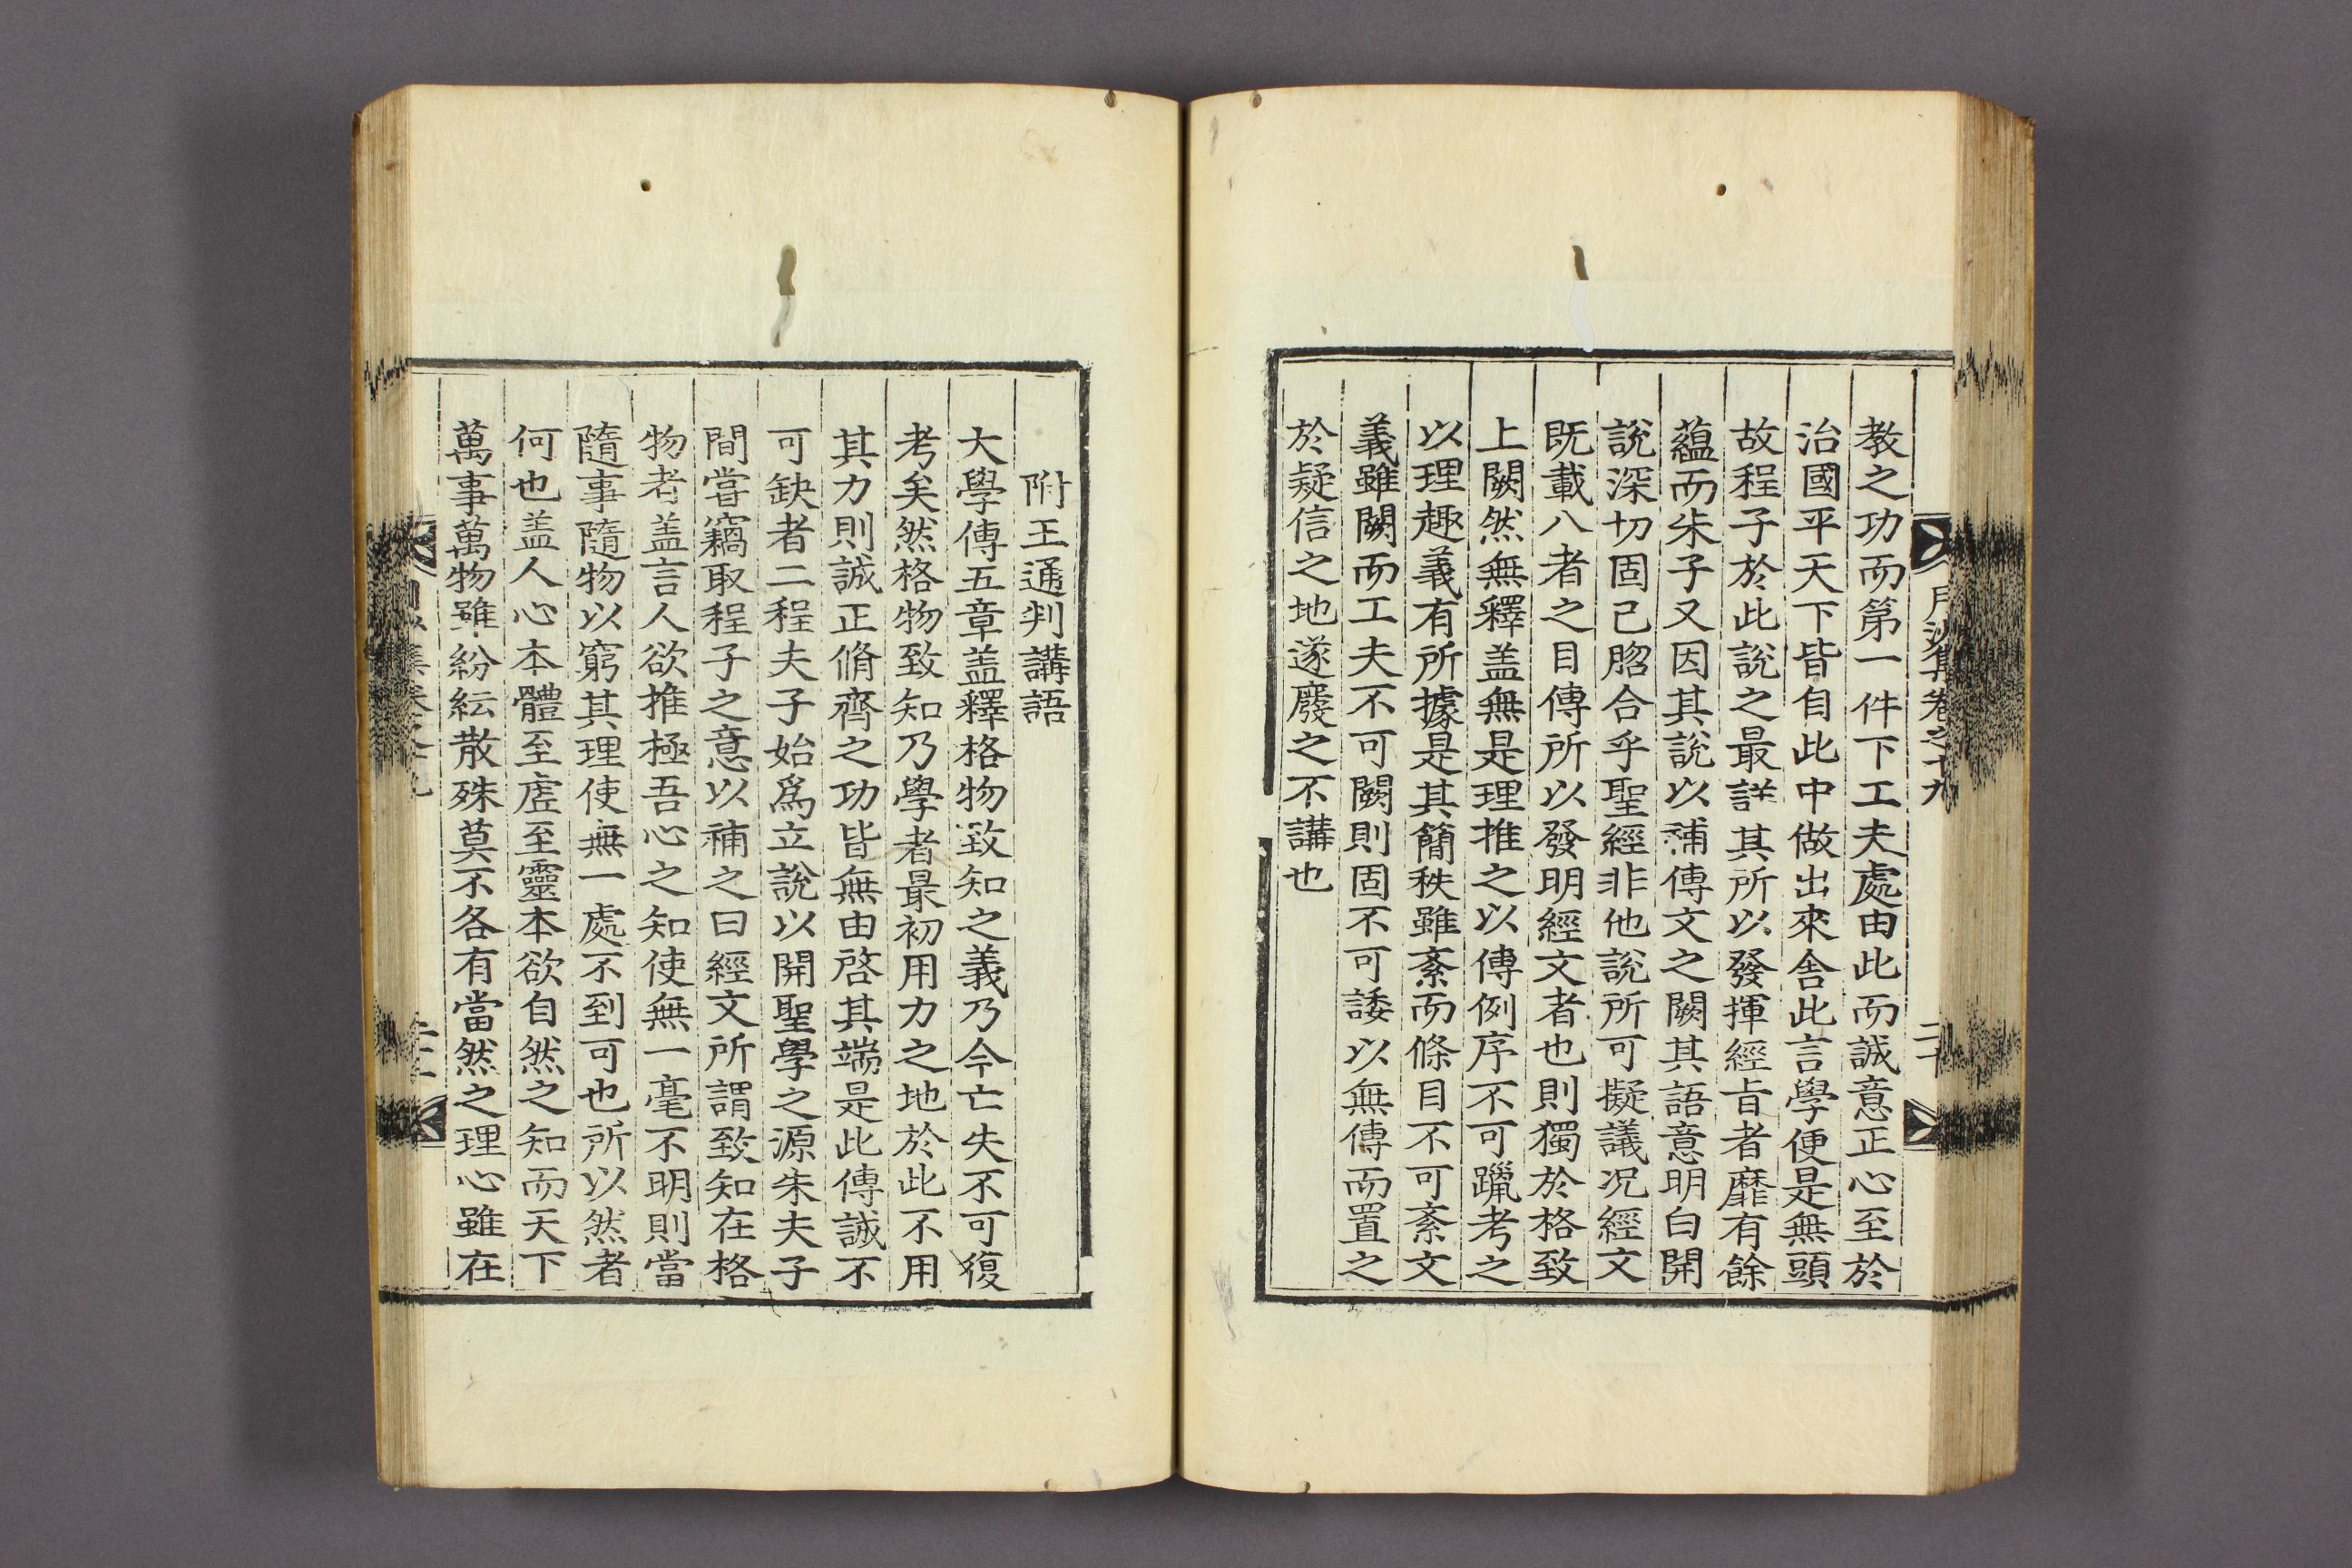 教之功而第一件下工夫處由此而誠意正心至於
治國平天下皆自此中做出來舍此言學便是無頭
故程子於此說之最詳其所以發揮經旨者靡有餘
蘊而朱子又因其說以補傳文之闕其語意明白開
說深切固已脗合乎聖經非他說所可擬議况經文
旣載八者之目傳所以發明經文者也則獨於格致
上闕然無釋盖無是理推之以傳例序不可躐考之
以理趣義有所據是其簡秩雖紊而條目不可紊文
義雖闕而工夫不可闕則固不可諉以無傳而置之
於疑信之地遂廢之不講也
附王通判講語
大學傳五章盖釋格物致知之義乃今亡失不可復
考矣然格物致知乃學者最初用力之地於此不用
其力則誠正脩齊之功皆無由啓其端是此傳誠不
可缺者二程夫子始爲立說以開聖學之源朱夫子
間嘗竊取程子之意以補之曰經文所謂致知在格
物者盖言人欲推極吾心之知使無一毫不明則當
隨事隨物以窮其理使無一處不到可也所以然者
何也盖人心本體至虛至靈本欲自然之知而天下
萬事萬物雖紛紜散殊莫不各有當然之理心雖在